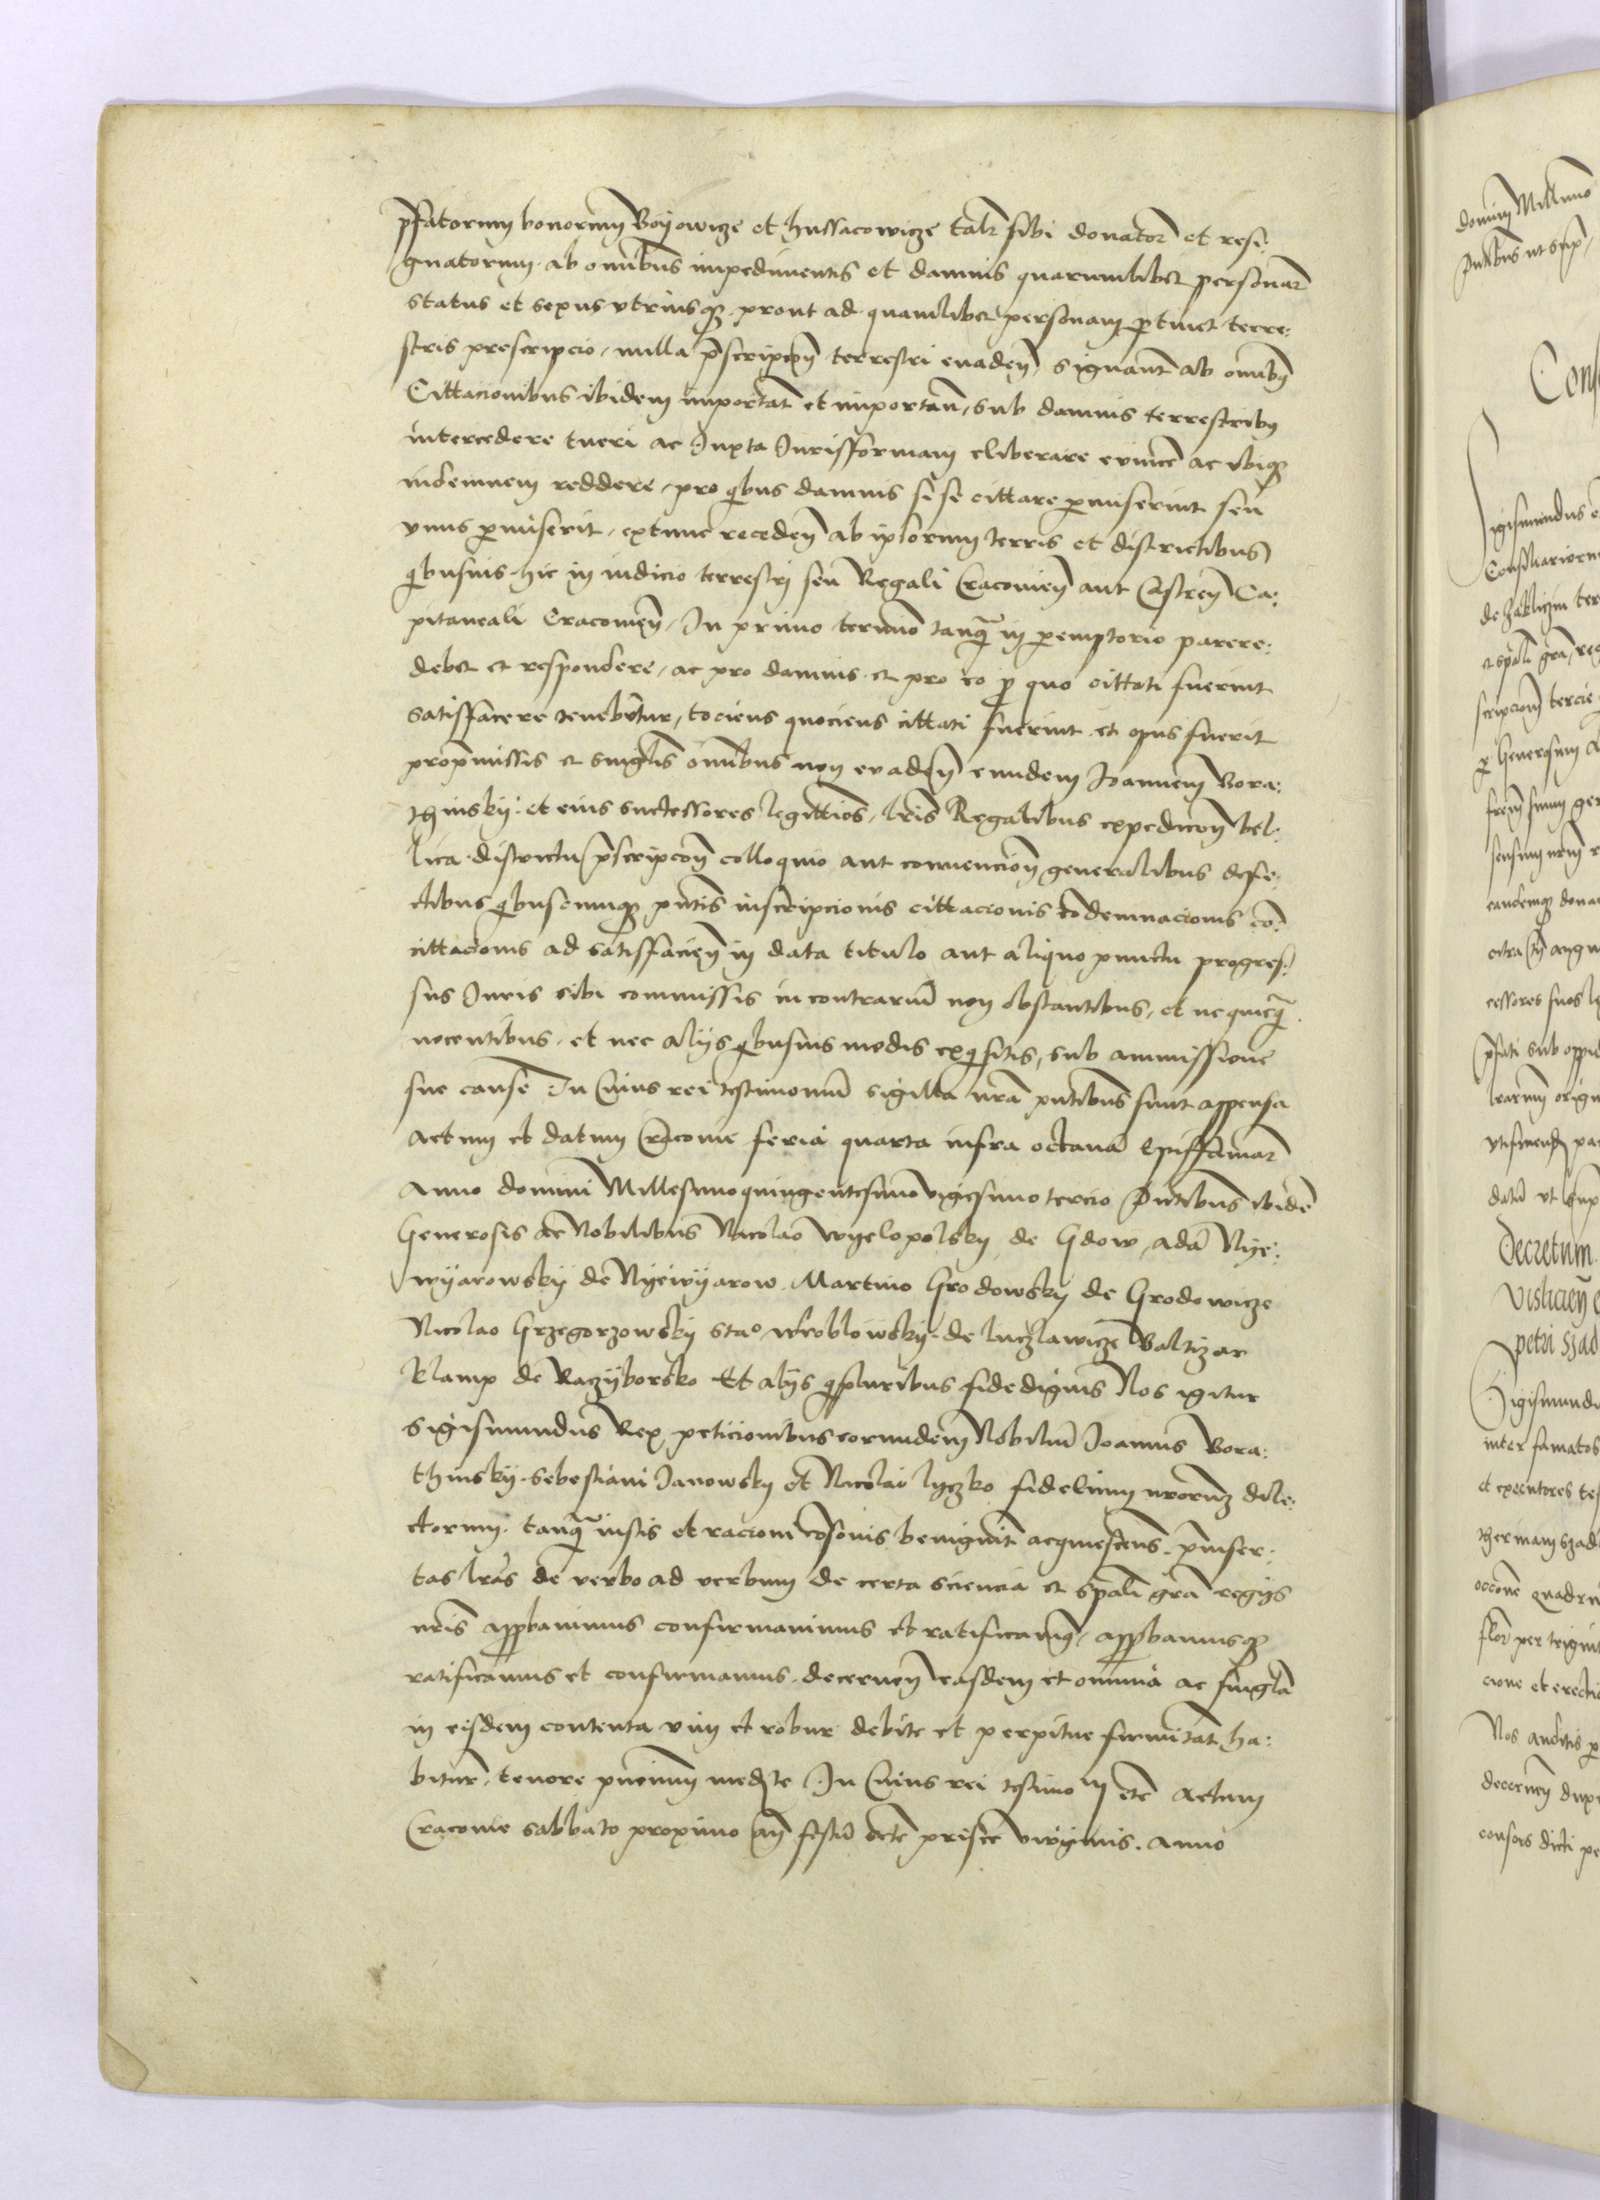 pfatorum bonorum Boyowicze et Hussacowicze talr sibi donator et resi:
gnatorum ab omnibus impedimentis et damnis quarumlibet personar
status et sexus vtriusque prout ad quamlibet personam ptinet terre:
stris prescripcio, nulla pscripcon terrestri evaden, signant ab omnibus
Cittacionibus ibidem importat et importan, sub damnis terrestribus
intercedere tueri ac Juxta Jurisfformam eliberare evincere ac vbique
indemnem reddere, pro quibus damnis si se cittare pmiserint seu
vnus pmiserit, extunc receden ab ipsorum terris et districtibus
quibusuis hic in iudicio terrestri seu Regali Cracovien aut Castren Ca:
pitaneali Cracovien, In primo termino tanq in peremptorio parere:
debet et respondere, ac pro damnis et pro eo p quo cittati fuerint
satisfacere tenebuntur, tociens quociens cittati fuerint et opus fuerit
propmissis et singulis omnibus non evaden eundem Joannem Bora:
thinsky et eius successores legittios, lris Regalibus expedicon bel:
lica districtu pscripcon colloquio aut convencion generalibus defe:
ctibus quibuscunque pntis inscripcionis cittacionis condemnacionis con
cittacionis ad satisfacien in data titulo aut aliquo punctu progres:
sus Juris sibi commissis in contrarium non obstantibus, et nequicq
nocentibus, et nec alijs quibusuis modis exquisitis, sub ammissione
sue cause In Cuius rei testimonium sigilla nra pntibus sunt appensa
Actum et datum Cracovie feria quarta infra octavam Epiffaniar
Anno domini Millesimoquingentesimo vigesimo tercio Pntibus ibidem
Generosis ac Nobilibus Nicolao Wyelopolsky de Gdow, Adam Nye:
wyarowsky de Nyewyarow Martino Grodowsky de Grodowicze
Nicolao Grzegorzowsky Stao Wroblowsky de Luczlawicze Baltizar
Klamp de Raczyborsko Et alijs qpluribus fidedignis Nos igitur
Sigismundus Rex peticionibus eorundem Nobilium Joannis Bora:
thinsky Sebestiani Janowsky et Nicolai Lyczko fidelium nrorum dile:
ctorum tanq iustis et racioni consonis benignit acquiescens pinser:
tas lras de verbo ad verbum de certa sciencia et spali gra regijs
nris approbavimus confirmavimus et ratificavimus, approbamusque
ratificamus et confirmamus decernen easdem et omnia ac singla
in eisdem contenta vim et robur debite et perpetue firmitat ha:
bitur, tenore pncium mediante In Cuius rei testimonium etc Actum
Cracovie sabbato proximo an festum scte prisce virginis. Anno
domini Millimo
Pntibus ut sup
Sigismundus
de Zakliczin
Decretum
petri
Sigismund
inter famatos
et executores
flor per trigint
cione et erecti
Nos auditis
consors dicti